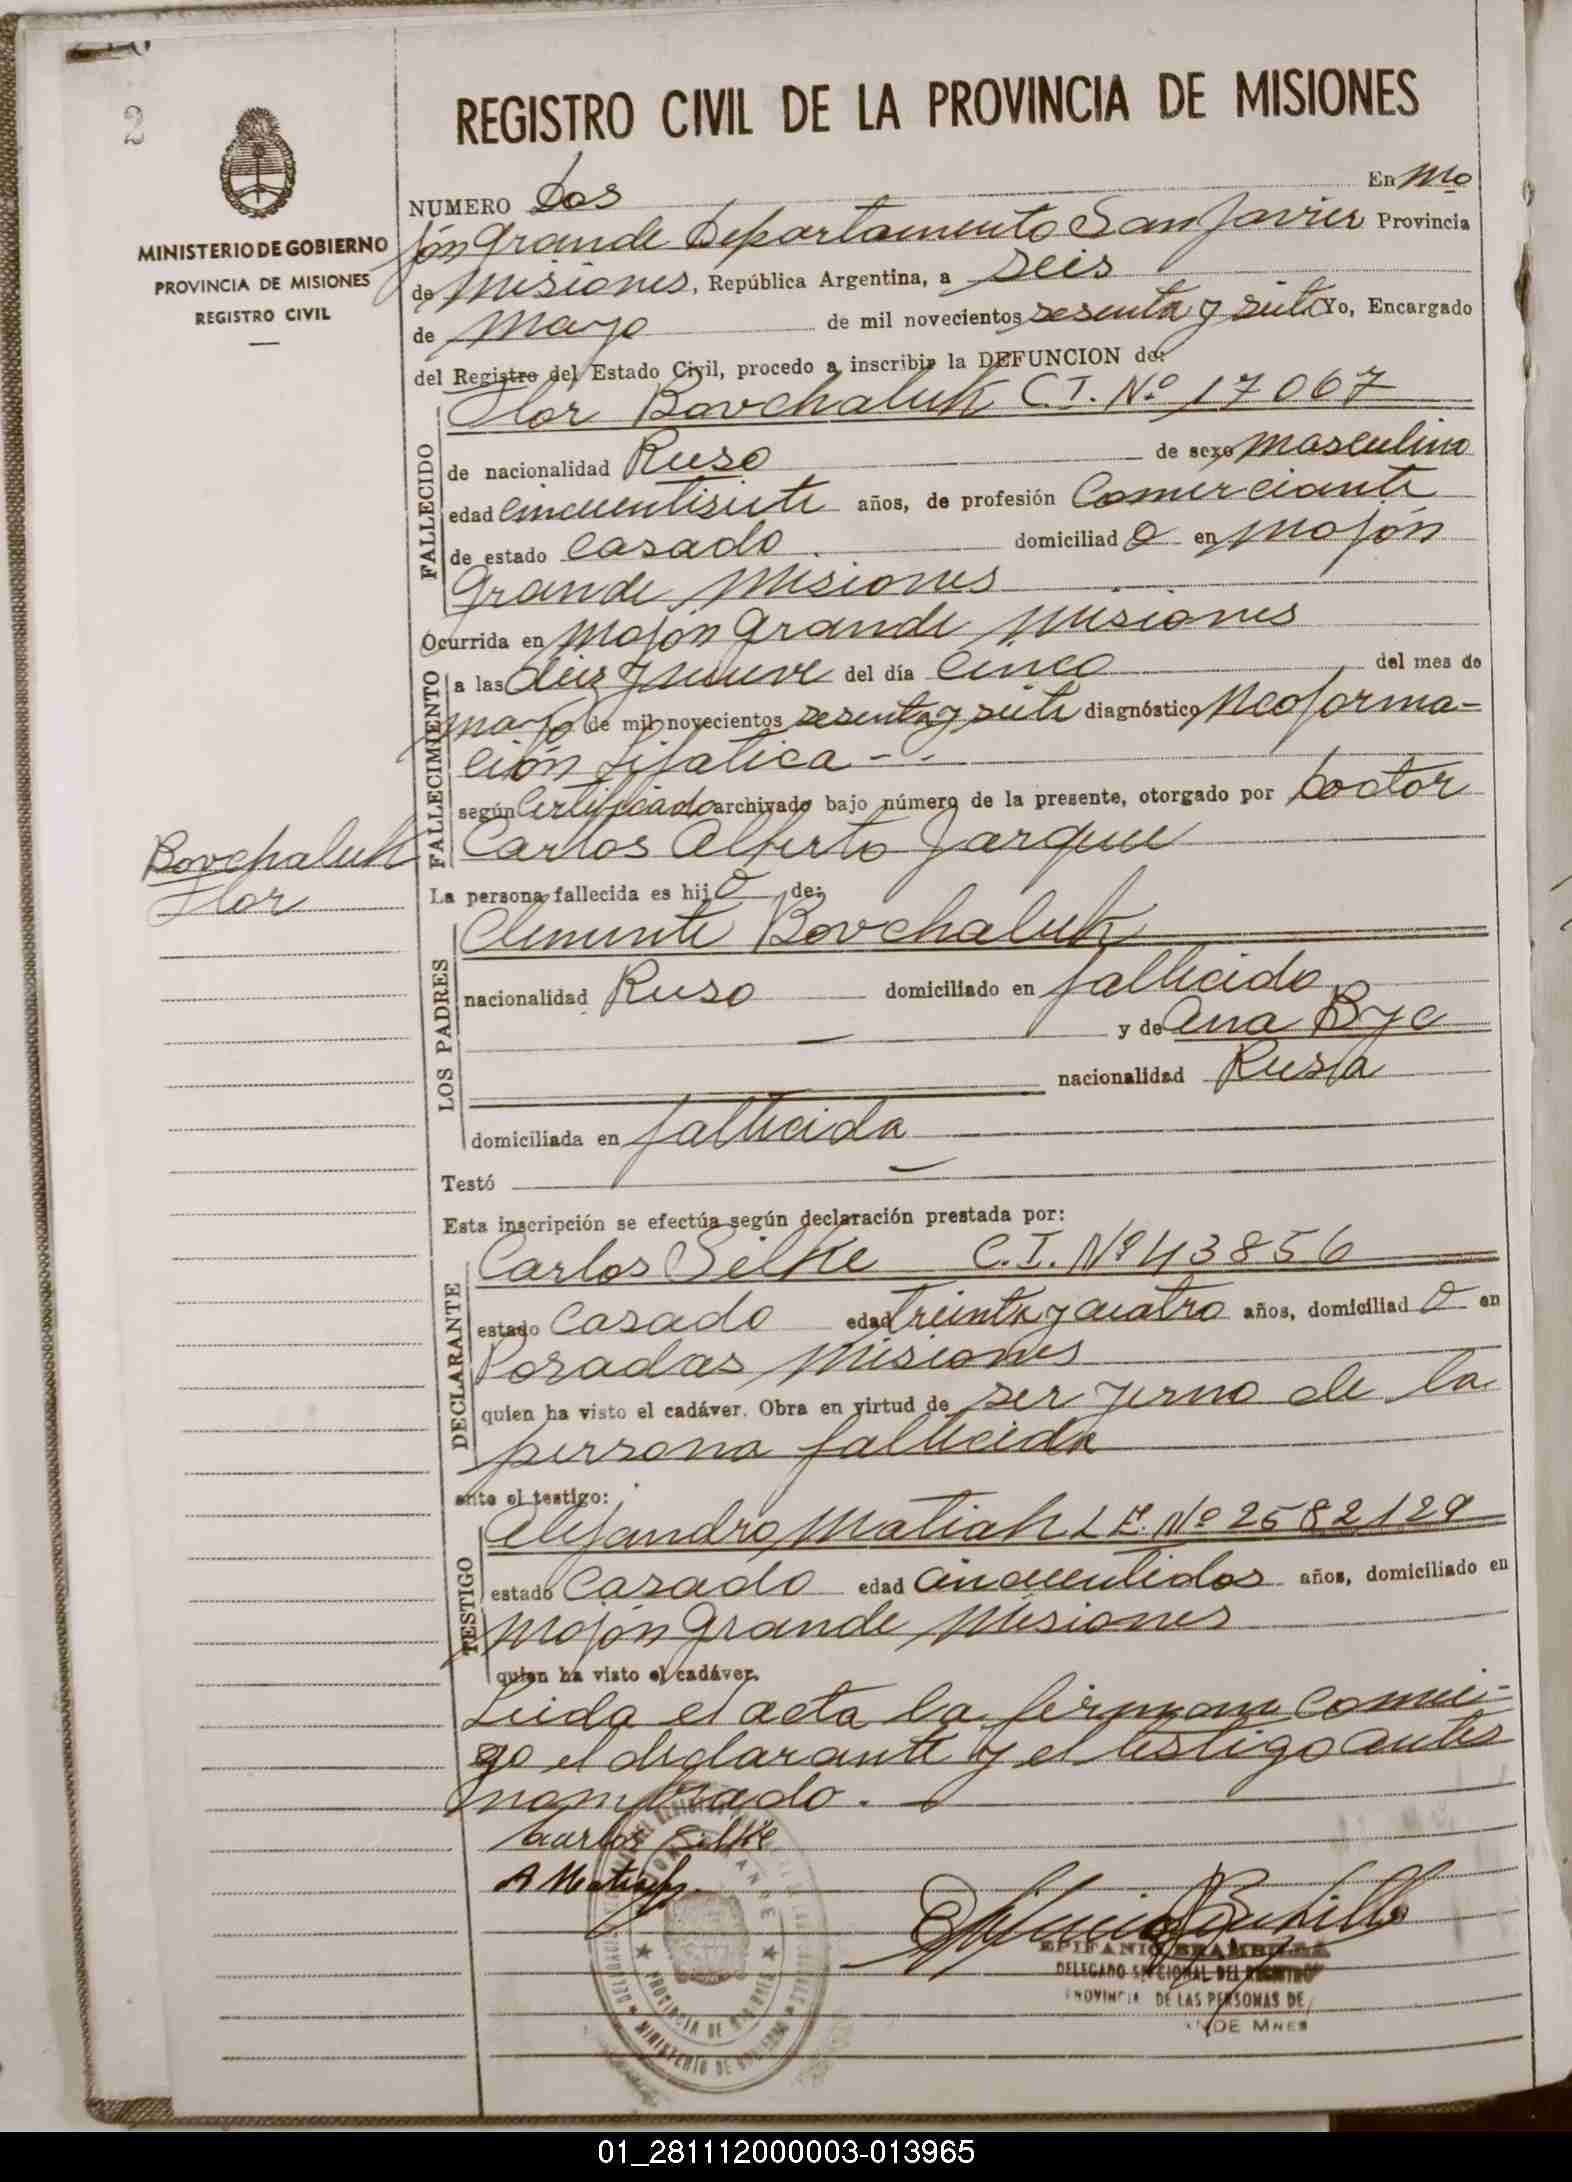 2
MINISTERIO DE GOBIERNO
PROVINCIA DE MISIONES
REGISTRO CIVIL
REGISTRO CIVIL DE LA PROVINCIA DE MISIONES
NUMERO Dos En Mo
jón Grande Departamento San Javier Provincia
de Misiones, República Argentina, a seis
de Mayo de mil novecientos sesenta y siete Yo, Encargado
del Registro del Estado Civil, procedo a inscribir la DEFUNCION de:
FALLECIDO
Flor Bovchaluk C.I. Nº 17067
de nacionalidad Ruso de sexo masculino
edad cincuentisiete años, de profesión Comerciante
de estado casado domiciliado en Mojón
Grande Misiones
FALLECIMIENTO
Ocurrida en Mojón Grande Misiones
a las diez y nueve del día cinco del mes de
mayo de mil novecientos sesenta y siete diagnóstico Neoforma-
ción
según Certificado archivado bajo número de la presente, otorgado por Doctor
Carlos Alberto Jarque
Bovchaluk
Flor
La persona fallecida es hijo de:
LOS PADRES
Clemente Bovchaluk
nacionalidad Ruso domiciliado en fallecido
y de Ana Byc
nacionalidad Rusa
domiciliada en fallecida
Testó
Esta inscripción se efectúa según declaración prestada por:
DECLARANTE
Carlos Silke C.I. Nº 43856
estado casado edad treinta y cuatro años, domiciliado en
Posadas Misiones
quien ha visto el cadáver. Obra en virtud de ser yerno de la
persona fallecida
ante el testigo:
TESTIGO
Alejandro Matiak L E. Nº 2582129
estado casado edad cincuentidos años, domiciliado en
Mojón Grande Misiones
quien ha visto el cadáver.
Leida el acta la firman conmi-
go el declarante y el testigo antes
nombrado.
Carlos Silke
A Matiak
DELEGADO SECCIONAL DEL REGISTRO
PROVINCIAL DE LAS PERSONAS DE
PROVINCIA DE MISIONES
MINISTERIO DE GOBIERNO
01_281112000003-013965